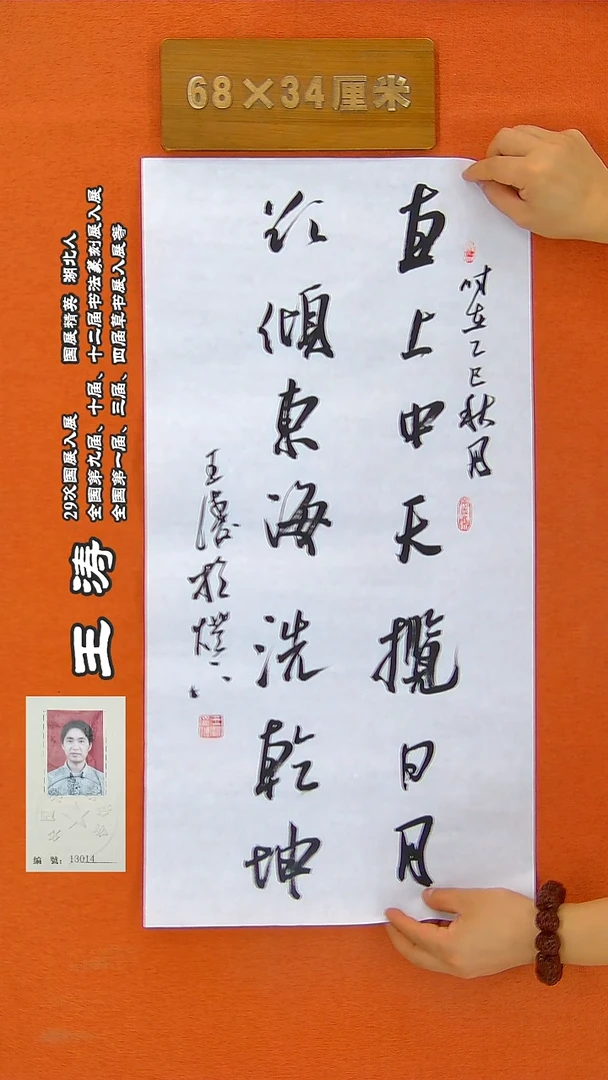 68×34厘米
时在乙巳秋月
直上中天攬日月
欲傾東海洗乾坤
王濤於燈下
王涛
29次国展入展 国展精英 湖北人
全国第九届、十届、十二届书法篆刻展入展
全国第一届、三届、四届草书展入展等
编 號：13014